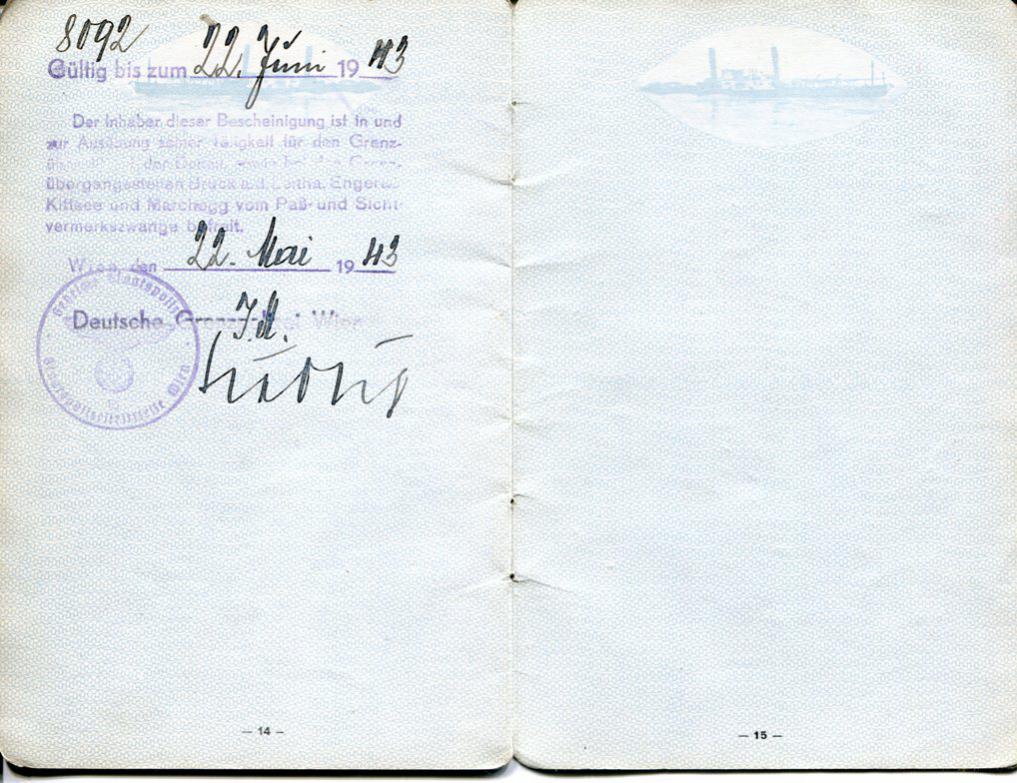 8092
Gültig bis zum 22. Juni 1943
Der Inhaber dieser Bescheinigung ist in und
zur Ausübung seiner Tätigkeit für den Grenz-
der Donau, sowie bei den Grenz-
übergangsstellen Bruck a.d. Leitha, Engerau
Kittsee und Marchegg vom Paß- und Sicht-
vermerkszwange befreit.
Wien, den 22. Mai 1943
Geheime Staatspolizei
Deutsche Wien
I.A.
Staatspolizeileitstelle Wien
— 14 —
— 15 —